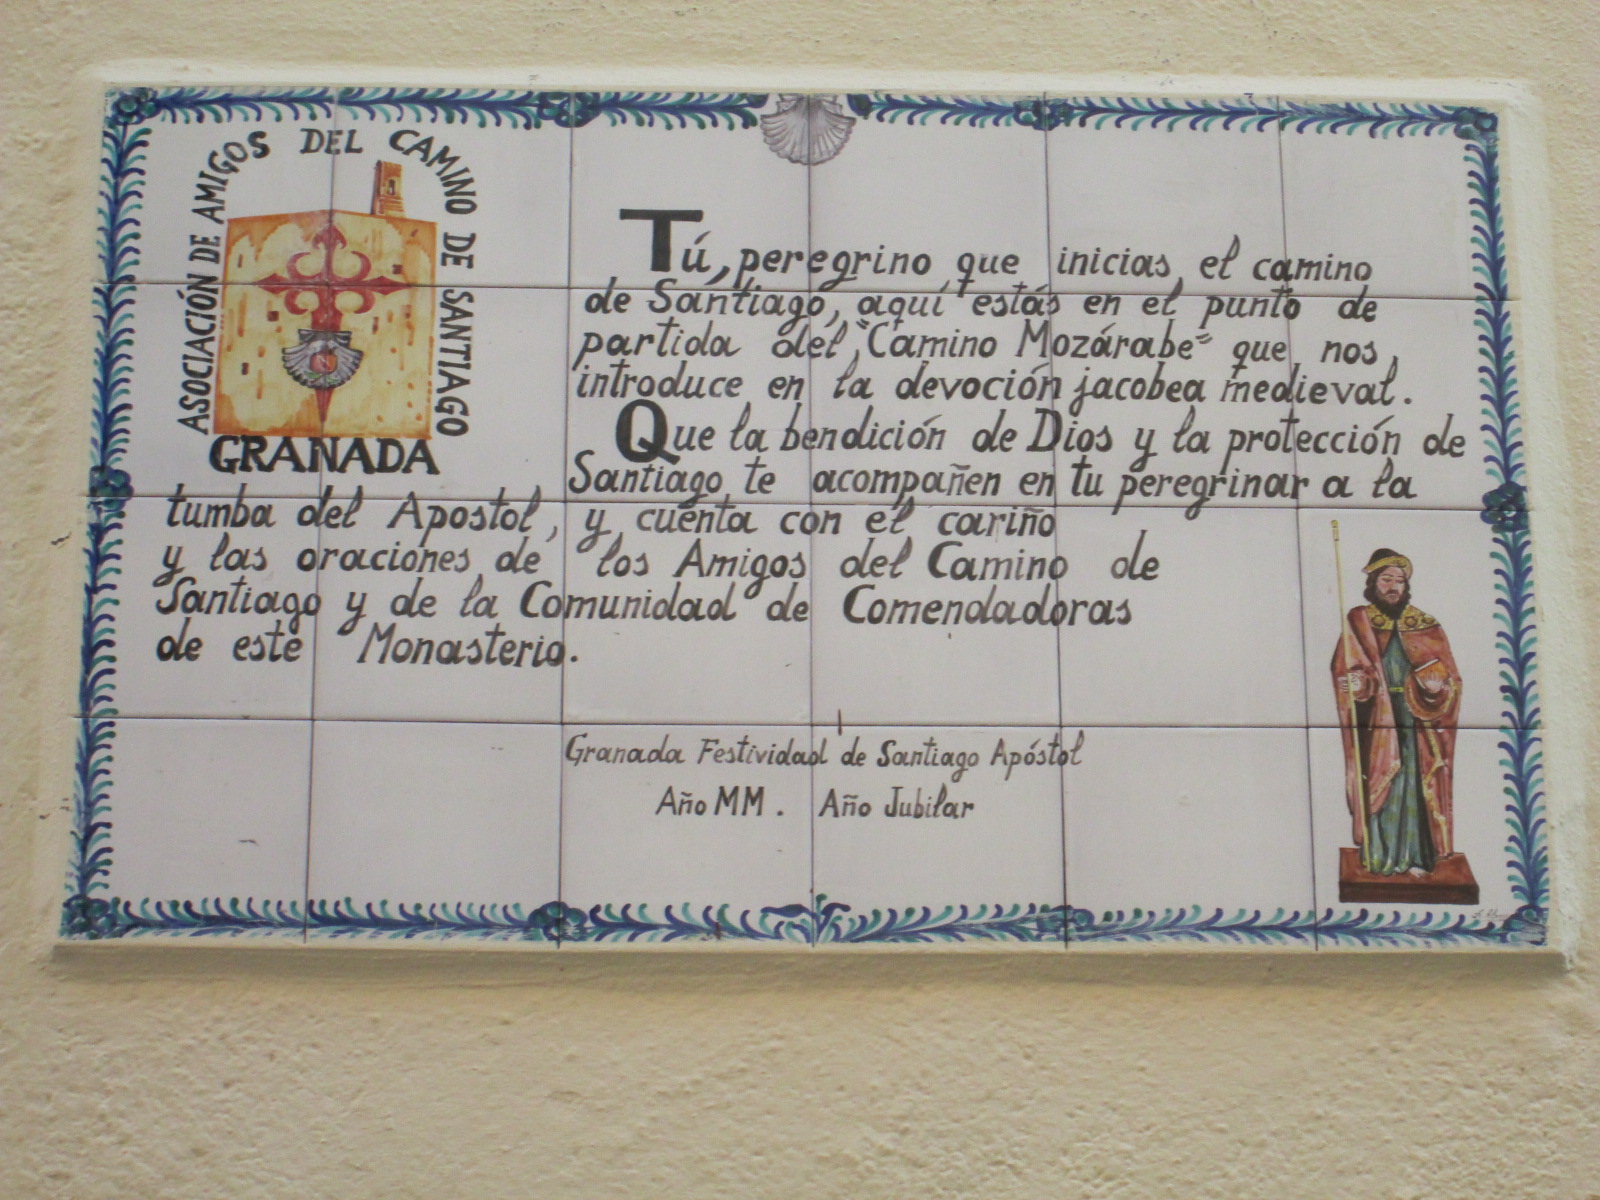 ASOCIACIÓN DE AMIGOS DEL CAMINO DE SANTIAGO
GRANADA
Tú, peregrino que inicias el camino
de Santiago, aquí estás en el punto de
partida del "Camino Mozárabe" que nos
introduce en la devoción jacobea medieval.
Que la bendición de Dios y la protección de
Santiago te acompañen en tu peregrinar a la
tumba del Apostol, y cuenta con el cariño
y las oraciones de los Amigos del Camino de
Santiago y de la Comunidad de Comendadoras
de este Monasterio.
Granada Festividad de Santiago Apóstol
Año MM. Año Jubilar